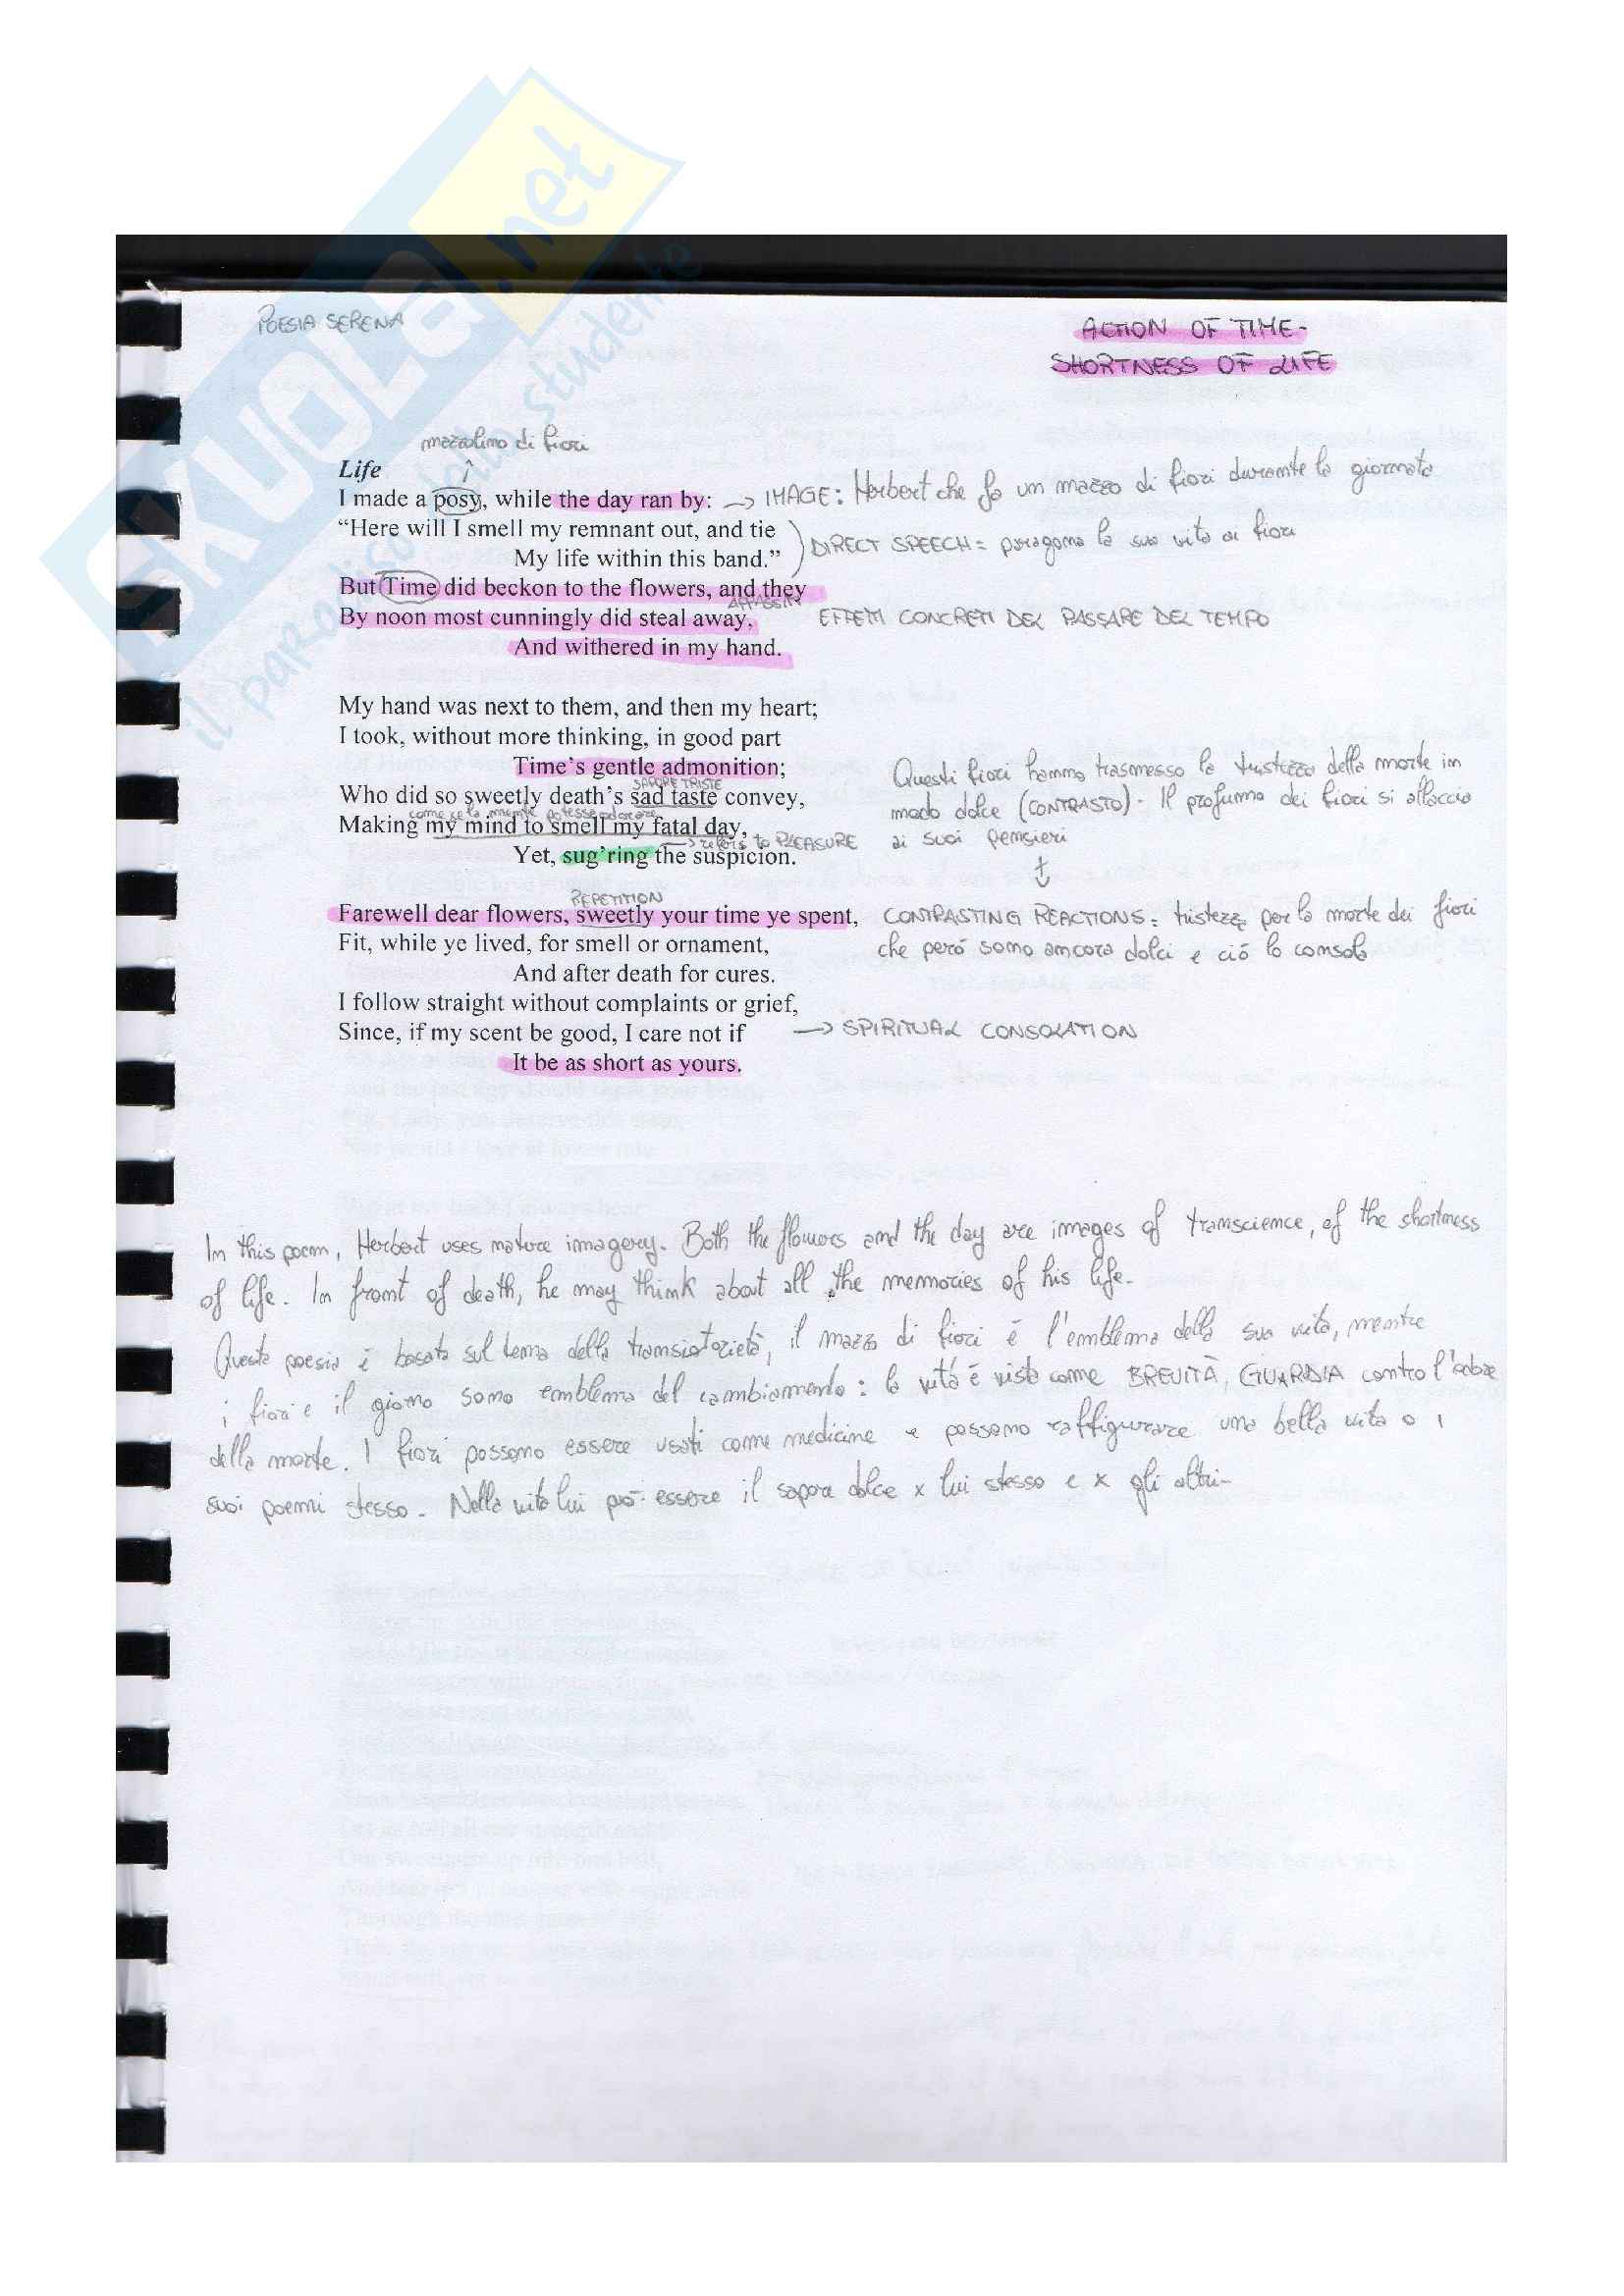 SKUOLA.net
il paradiso dello studente
POESIA SERENA
ACTION OF TIME-
SHORTNESS OF LIFE
mazzolino di fiori
Life
I made a posy, while the day ran by: → IMAGE: Herbert che fa un mazzo di fiori durante la giornata
“Here will I smell my remnant out, and tie
My life within this band.” DIRECT SPEECH = paragona la sua vita ai fiori
But Time did beckon to the flowers, and they
APPASSITI
By noon most cunningly did steal away, EFFETTI CONCRETI DEL PASSARE DEL TEMPO
And withered in my hand.
My hand was next to them, and then my heart;
I took, without more thinking, in good part
Time’s gentle admonition;
SAPORE TRISTE
Who did so sweetly death’s sad taste convey,
come se la mente potesse odorare
Making my mind to smell my fatal day,
→ refers to PLEASURE
Yet, sug’ring the suspicion.
Questi fiori hanno trasmesso la tristezza della morte in
modo dolce (CONTRASTO) - Il profumo dei fiori si allaccia
ai suoi pensieri
↓
REPETITION
Farewell dear flowers, sweetly your time ye spent, CONTRASTING REACTIONS: tristezza per la morte dei fiori
Fit, while ye lived, for smell or ornament, che peró sono ancora dolci e ció lo consola
And after death for cures.
I follow straight without complaints or grief,
Since, if my scent be good, I care not if → SPIRITUAL CONSOLATION
It be as short as yours.
In this poem, Herbert uses nature imagery. Both the flowers and the day are images of transcience, of the shortness
of life. In front of death, he may think about all the memories of his life.
Questa poesia é basata sul tema della transiatorietà, il mazzo di fiori é l'emblema della sua vita, mentre
i fiori e il giorno sono emblema del cambiamento: la vita é vista come BREVITÀ, GUARDIA contro l'odore
della morte. I fiori possono essere usati come medicine e possono raffigurare una bella vita o i
suoi poemi stesso. Nella vita lui può essere il sapore dolce x lui stesso e x gli altri-